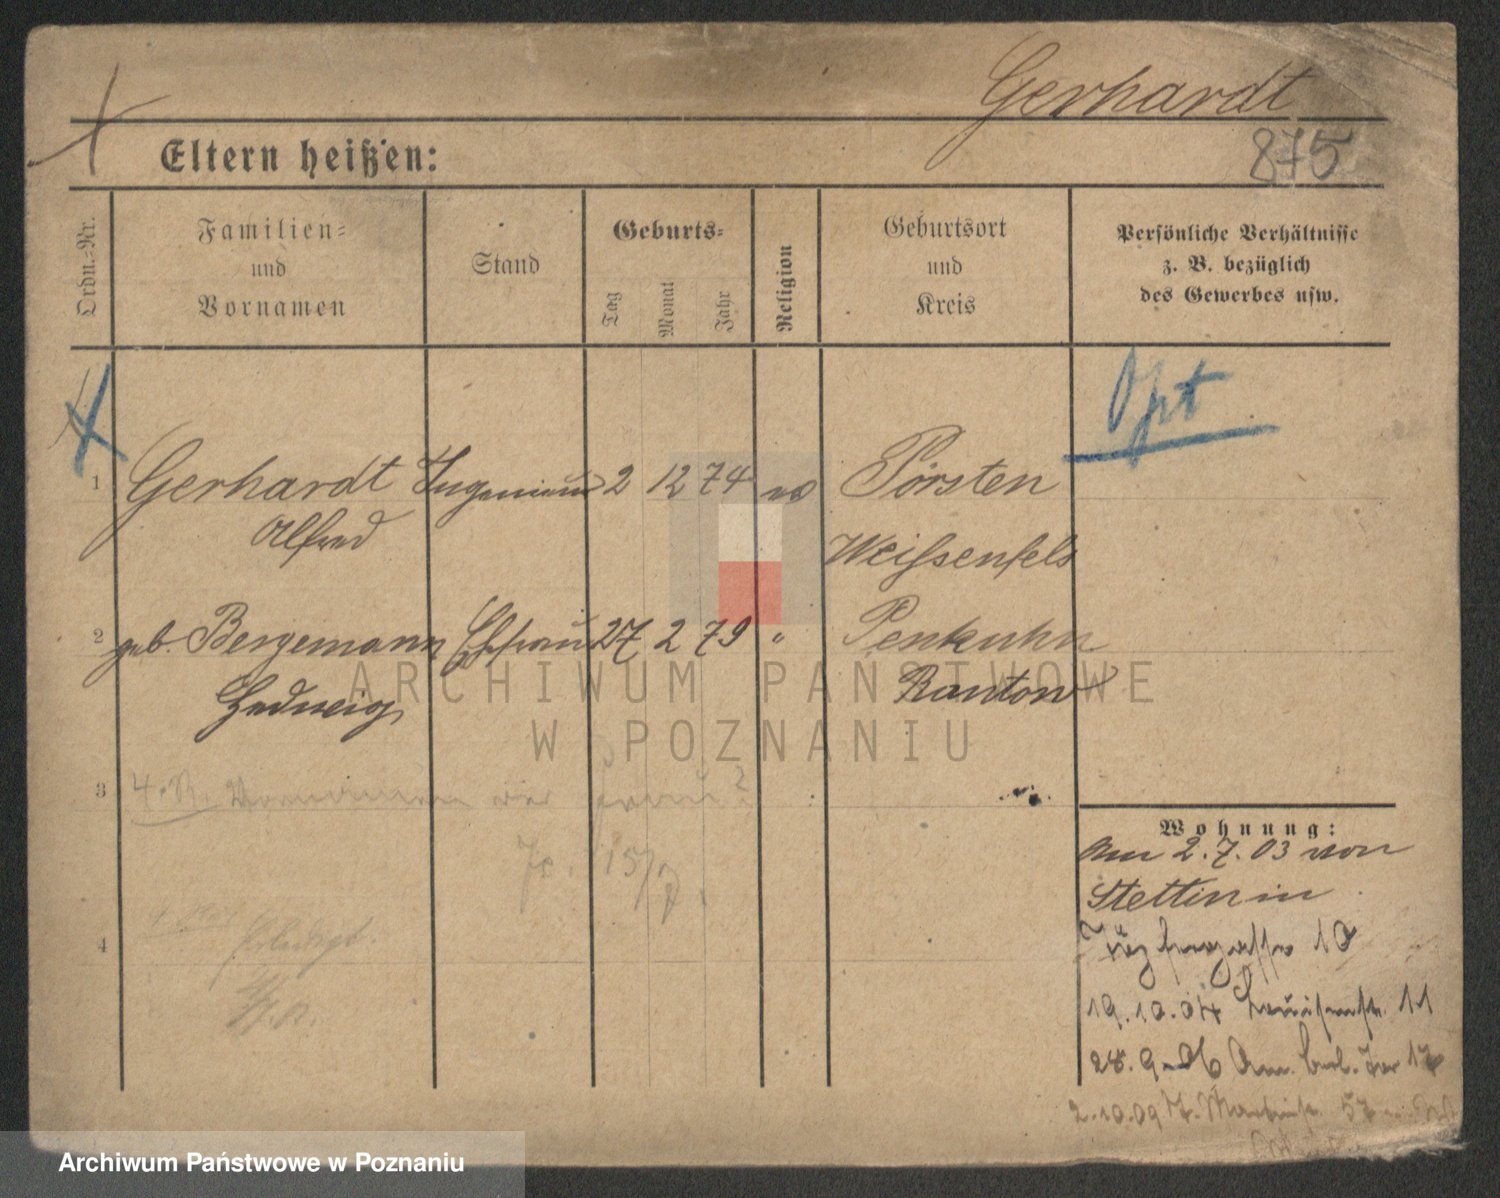 Gerhardt
875
Eltern heißen:
Ordn.-Nr.
Familien-
und
Vornamen
Stand
Geburts-
Tag
Monat
Jahr
Religion
Geburtsort
und
Kreis
Persönliche Verhältnisse
z. B. bezüglich
des Gewerbes usw.
Opt
1 Gerhardt Ingenieur 2 12 74 ev Pörsten
Alfred Weißenfels
2 geb. Bergemann Ehefrau 27 2 79 " Penkuhn
Hedwig Randow
3
4
Wohnung:
Am 2.7.03 von
Stettin in
10
19.10.04 Louisenstr. 11
28.9.06 Am Berl. Tor 17
2.10.09 Martinstr. 57
ARCHIWUM PAŃSTWOWE
W POZNANIU
Archiwum Państwowe w Poznaniu